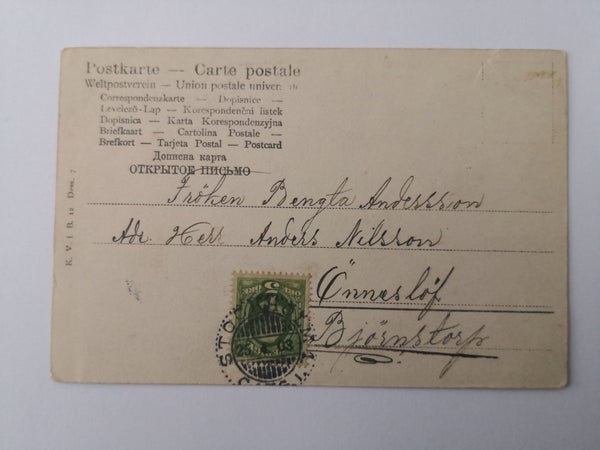 Postkarte — Carte postale
Weltpostverein — Union postale univer
Correspondenzkarte — Dopisnice —
Levelező-Lap — Korespondenční listek
Dopisnica — Karta Korespondenzyjna
Briefkaart — Cartolina Postale —
Brefkort — Tarjeta Postal — Postcard
Дописна карта
ОТКРЫТОЕ ПИСЬМО
Fröken Bengta Andersson
Adr. Herr Anders Nilsson
Önneslöf
Björnstorp
K. V. i B. 12 Dess. 7
5